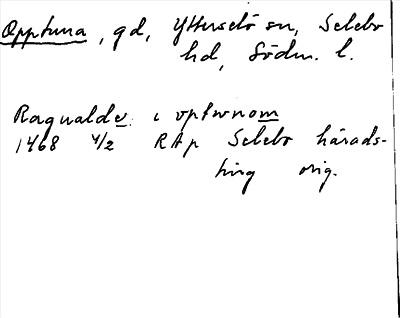 Opptuna, gd, Ytterselö sn, Selebo
hd, Södm. l.
Ragualde i optwnom
1468 4/2 RAp Selebo härads-
ting orig.